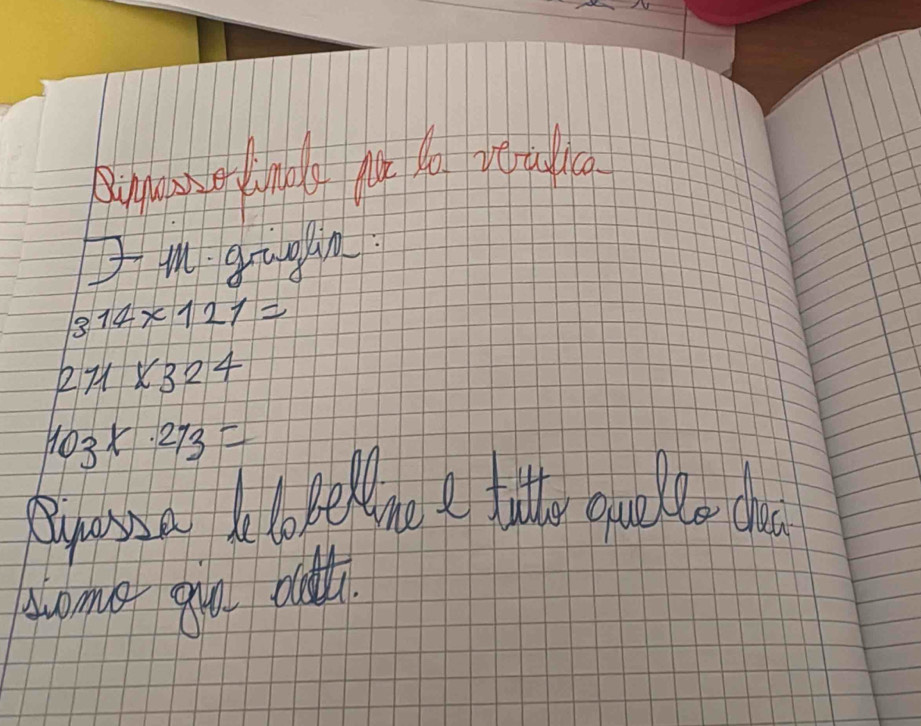 Ripasso finale per la verifica
In griglia:
314 x 121 =
271 x 324
103 x 273 =
Ripassa le tabelline e tutto quello che ci
siamo già detti.